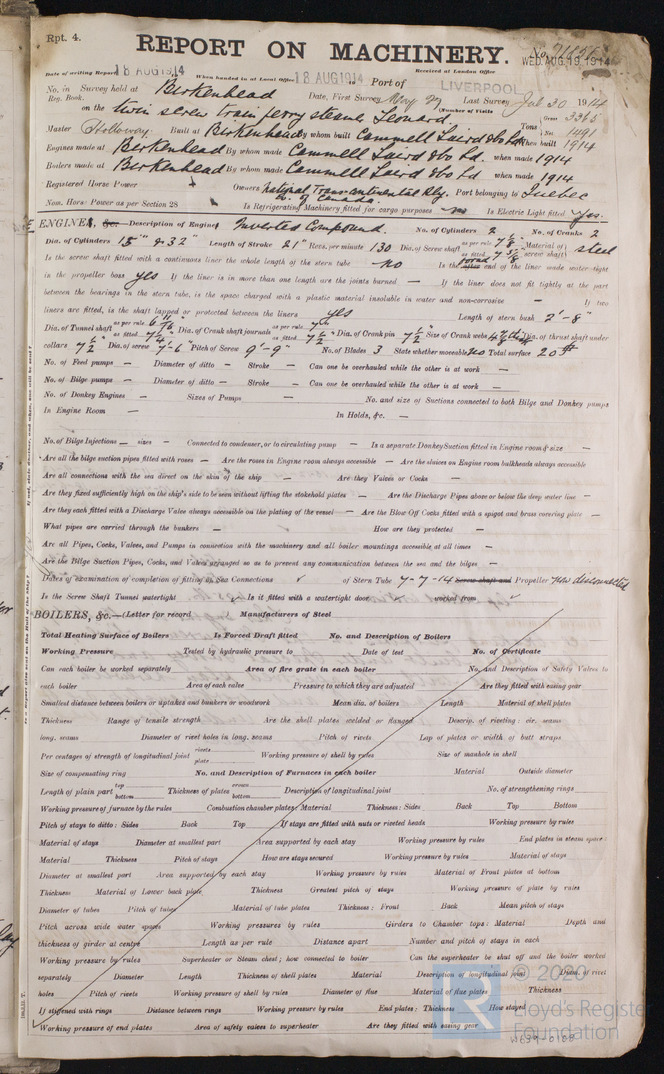 Rpt. 4.
REPORT ON MACHINERY.
No.
WED. AUG. 19. 1914
Date of writing Report 18 AUG 1914 When handed in at Local Office 18 AUG 1914 Port of LIVERPOOL
Received at London Office
No. in Survey held at Birkenhead Date, First Survey May 27 Last Survey Jul 30 1914
Reg. Book. (Number of Visits
on the twin screw train ferry steamer Leonard. Tons Gross 3365 Net 1491
Master Holloway. Built at Birkenhead By whom built Cammell Laird & Co Ld. When built 1914
Engines made at Birkenhead By whom made Cammell Laird & Co Ld. when made 1914
Boilers made at Birkenhead By whom made Cammell Laird & Co Ld when made 1914
Registered Horse Power Owners National Trans-continental Rly. of Canada. Port belonging to Quebec
Nom. Horse Power as per Section 28 Is Refrigerating Machinery fitted for cargo purposes no Is Electric Light fitted Yes.
ENGINES, &c.—Description of Engines Inverted Compound. No. of Cylinders 2 No. of Cranks 2
Dia. of Cylinders 15" & 32" Length of Stroke 21" Revs. per minute 130 Dia. of Screw shaft as per rule 7 1/8 as fitted 7 3/8 Material of screw shaft steel
Is the screw shaft fitted with a continuous liner the whole length of the stern tube no Is the after end of the liner made water tight
in the propeller boss yes If the liner is in more than one length are the joints burned — If the liner does not fit tightly at the part
between the bearings in the stern tube, is the space charged with a plastic material insoluble in water and non-corrosive — If two
liners are fitted, is the shaft lapped or protected between the liners yes Length of stern bush 2'-8"
Dia. of Tunnel shaft as per rule as fitted Dia. of Crank shaft journals as per rule as fitted 7 1/2" Dia. of Crank pin 7 1/2" Size of Crank webs Dia. of thrust shaft under
collars 7 1/2" Dia. of screw 7'-6" Pitch of Screw 9'-9" No. of Blades 3 State whether moveable No Total surface 20
No. of Feed pumps — Diameter of ditto — Stroke — Can one be overhauled while the other is at work —
No. of Bilge pumps — Diameter of ditto — Stroke — Can one be overhauled while the other is at work —
No. of Donkey Engines — Sizes of Pumps — No. and size of Suctions connected to both Bilge and Donkey pumps
In Engine Room — In Holds, &c. —
No. of Bilge Injections — sizes — Connected to condenser, or to circulating pump — Is a separate Donkey Suction fitted in Engine room & size —
Are all the bilge suction pipes fitted with roses — Are the roses in Engine room always accessible — Are the sluices on Engine room bulkheads always accessible
Are all connections with the sea direct on the skin of the ship — Are they Valves or Cocks —
Are they fixed sufficiently high on the ship's side to be seen without lifting the stokehold plates — Are the Discharge Pipes above or below the deep water line —
Are they each fitted with a Discharge Valve always accessible on the plating of the vessel — Are the Blow Off Cocks fitted with a spigot and brass covering plate —
What pipes are carried through the bunkers — How are they protected —
Are all Pipes, Cocks, Valves, and Pumps in connection with the machinery and all boiler mountings accessible at all times —
Are the Bilge Suction Pipes, Cocks, and Valves arranged so as to prevent any communication between the sea and the bilges —
Dates of examination of completion of fitting of Sea Connections of Stern Tube 7-7-14 Screw shaft and Propeller disconnected
Is the Screw Shaft Tunnel watertight Is it fitted with a watertight door worked from
BOILERS, &c.—(Letter for record ) Manufacturers of Steel
Total Heating Surface of Boilers Is Forced Draft fitted No. and Description of Boilers
Working Pressure Tested by hydraulic pressure to Date of test No. of Certificate
Can each boiler be worked separately Area of fire grate in each boiler No. and Description of Safety Valves to
each boiler Area of each valve Pressure to which they are adjusted Are they fitted with easing gear
Smallest distance between boilers or uptakes and bunkers or woodwork Mean dia. of boilers Length Material of shell plates
Thickness Range of tensile strength Are the shell plates welded or flanged Descrip. of riveting: cir. seams
long. seams Diameter of rivet holes in long. seams Pitch of rivets Lap of plates or width of butt straps
Per centages of strength of longitudinal joint rivets plate Working pressure of shell by rules Size of manhole in shell
Size of compensating ring No. and Description of Furnaces in each boiler Material Outside diameter
Length of plain part top bottom Thickness of plates crown bottom Description of longitudinal joint No. of strengthening rings
Working pressure of furnace by the rules Combustion chamber plates: Material Thickness: Sides Back Top Bottom
Pitch of stays to ditto: Sides Back Top If stays are fitted with nuts or riveted heads Working pressure by rules
Material of stays Diameter at smallest part Area supported by each stay Working pressure by rules End plates in steam space:
Material Thickness Pitch of stays How are stays secured Working pressure by rules Material of stays
Diameter at smallest part Area supported by each stay Working pressure by rules Material of Front plates at bottom
Thickness Material of Lower back plate Thickness Greatest pitch of stays Working pressure of plate by rules
Diameter of tubes Pitch of tubes Material of tube plates Thickness: Front Back Mean pitch of stays
Pitch across wide water spaces Working pressures by rules Girders to Chamber tops: Material Depth and
thickness of girder at centre Length as per rule Distance apart Number and pitch of stays in each
Working pressure by rules Superheater or Steam chest; how connected to boiler Can the superheater be shut off and the boiler worked
separately Diameter Length Thickness of shell plates Material Description of longitudinal joint Diam. of rivet
holes Pitch of rivets Working pressure of shell by rules Diameter of flue Material of flue plates Thickness
If stiffened with rings Distance between rings Working pressure by rules End plates: Thickness How stayed
Working pressure of end plates Area of safety valves to superheater Are they fitted with easing gear
© 2020
Lloyd's Register
Foundation
W639-0108